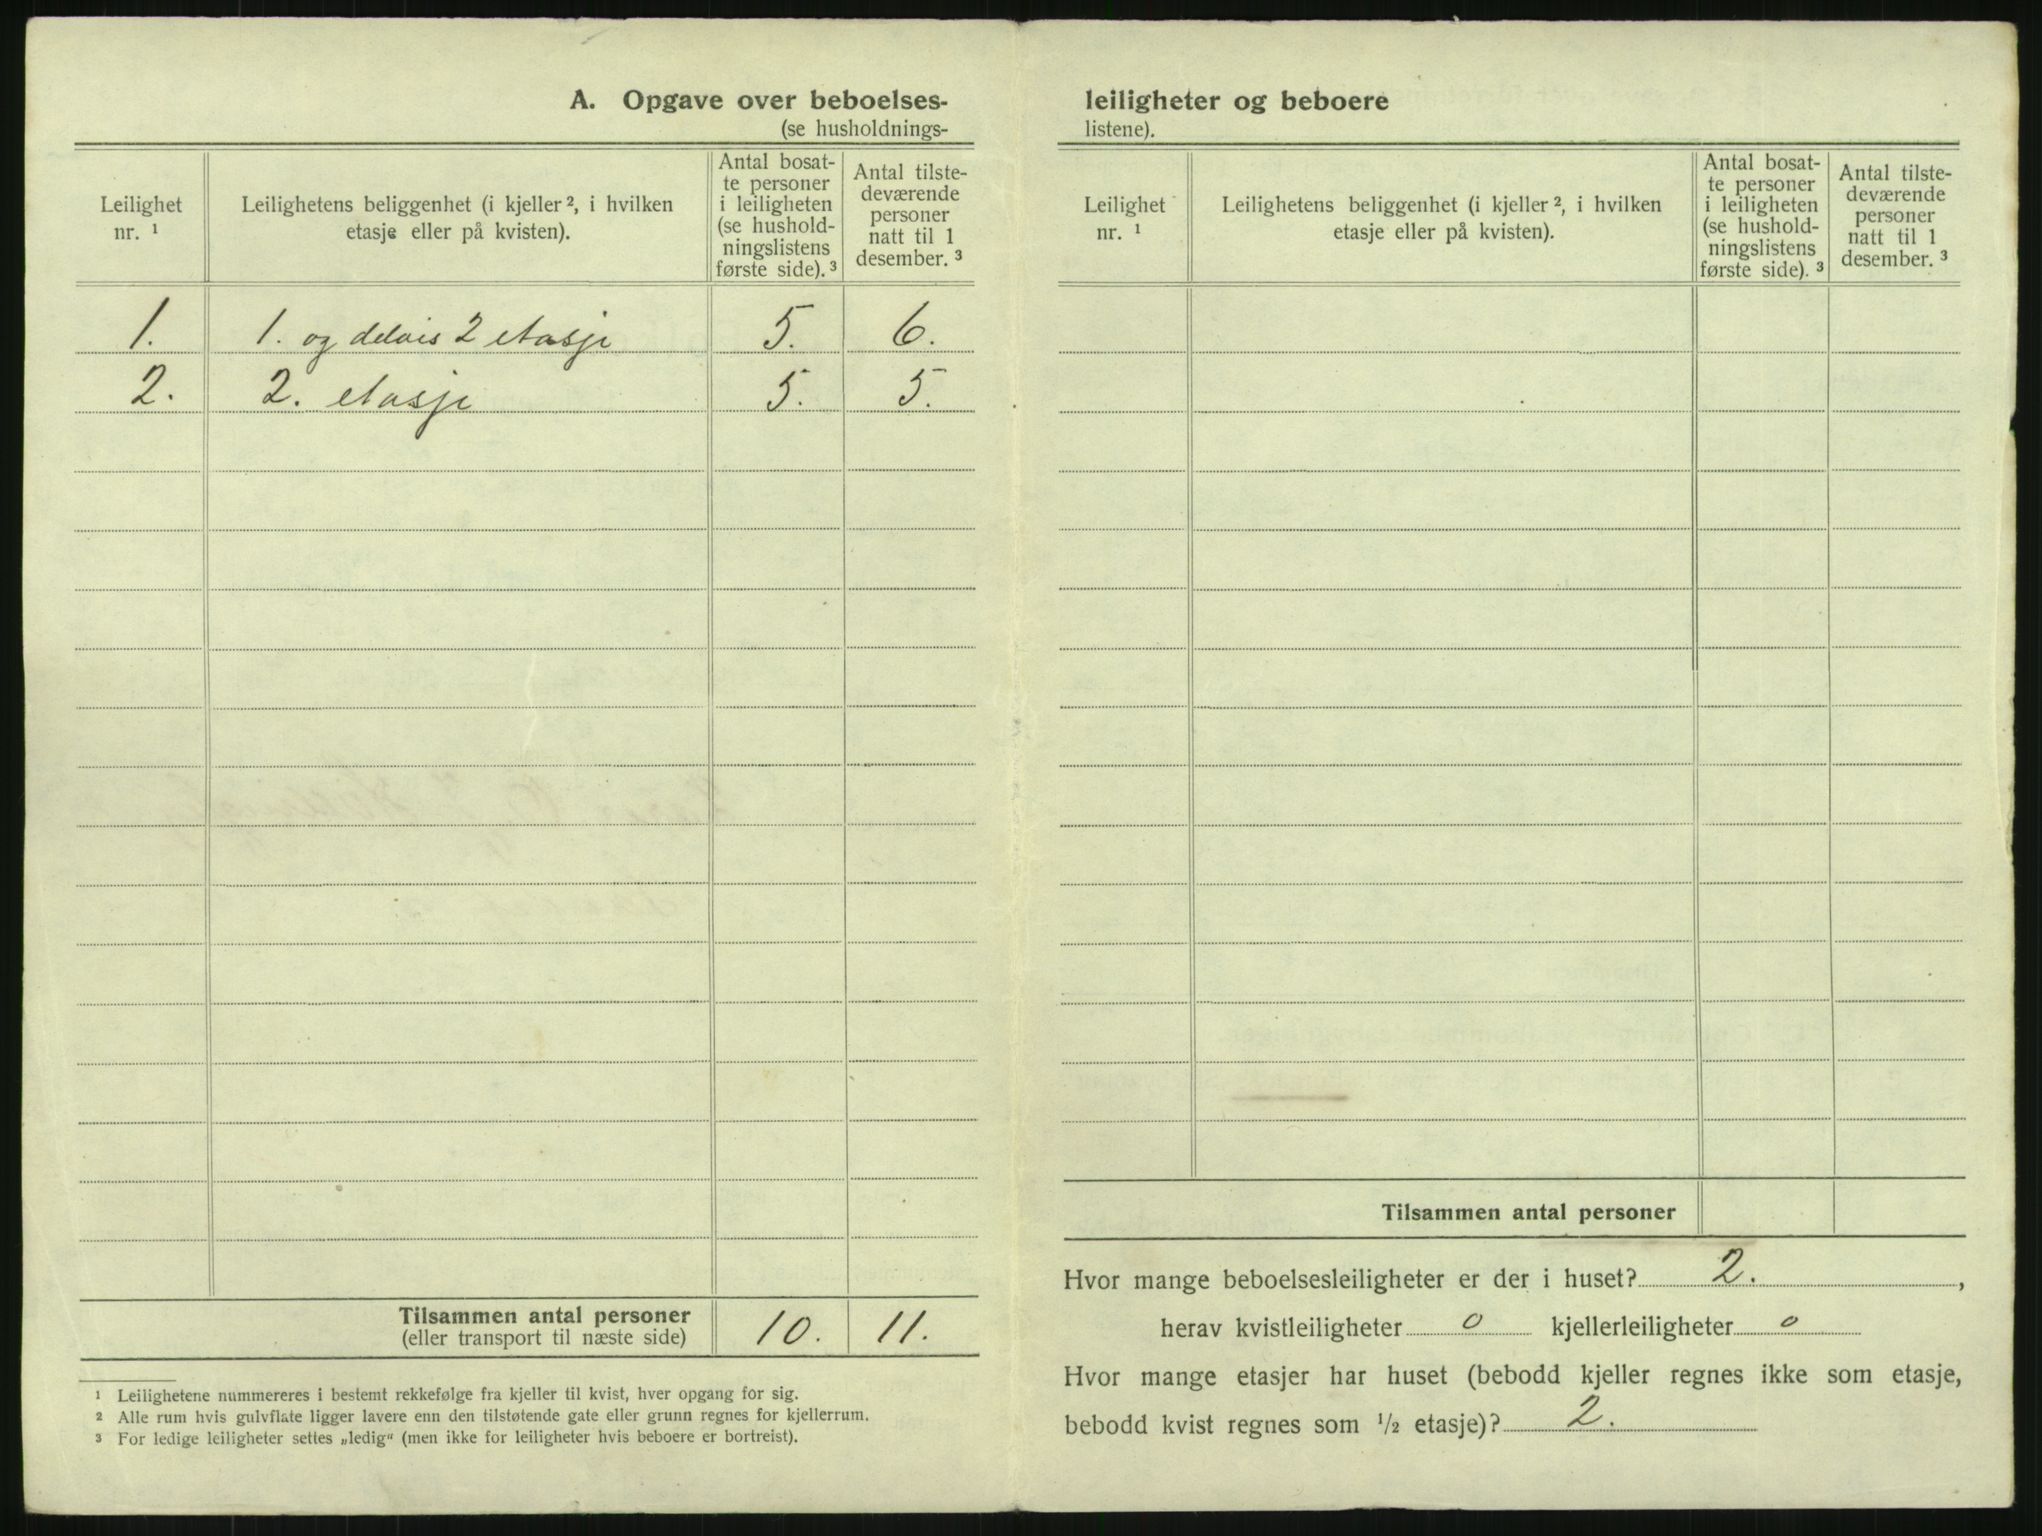 A. Opgave over beboelses-
(se husholdnings-
Leilighet nr. ¹
Leilighetens beliggenhet (i kjeller ², i hvilken etasje eller på kvisten).
Antal bosat-
te personer
i leiligheten
(se hushold-
ningslistens
første side). ³
Antal tilste-
deværende
personer
natt til 1
desember. ³
1. 1. og delvis 2 etasje 5. 6.
2. 2. etasje 5. 5.
Tilsammen antal personer 10. 11.
(eller transport til næste side)
¹ Leilighetene nummereres i bestemt rekkefølge fra kjeller til kvist, hver opgang for sig.
² Alle rum hvis gulvflate ligger lavere enn den tilstøtende gate eller grunn regnes for kjellerrum.
³ For ledige leiligheter settes „ledig“ (men ikke for leiligheter hvis beboere er bortreist).
leiligheter og beboere
listene).
Leilighet nr. ¹
Leilighetens beliggenhet (i kjeller ², i hvilken etasje eller på kvisten).
Antal bosat-
te personer
i leiligheten
(se hushold-
ningslistens
første side). ³
Antal tilste-
deværende
personer
natt til 1
desember. ³
Tilsammen antal personer
Hvor mange beboelsesleiligheter er der i huset? 2.,
herav kvistleiligheter 0 kjellerleiligheter 0
Hvor mange etasjer har huset (bebodd kjeller regnes ikke som etasje,
bebodd kvist regnes som ½ etasje)? 2.